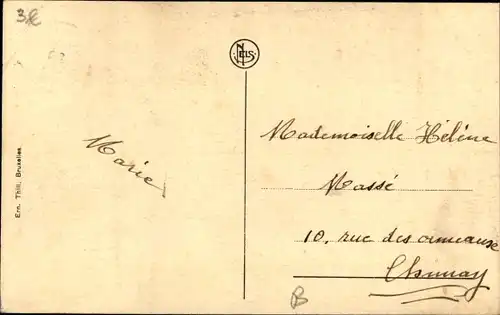 3€
NELS
Ern. Thill, Bruxelles
Marie
Mademoiselle Hélène
Massé
10, rue des
B